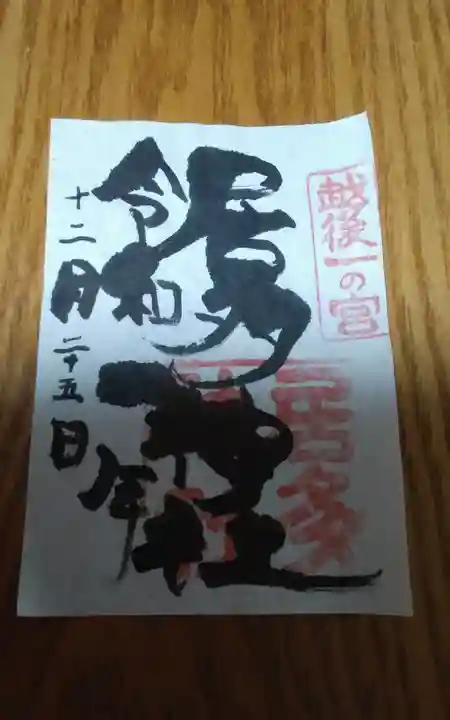 越後一の宮
居多神社
令和二年
十二月二十五日
居多